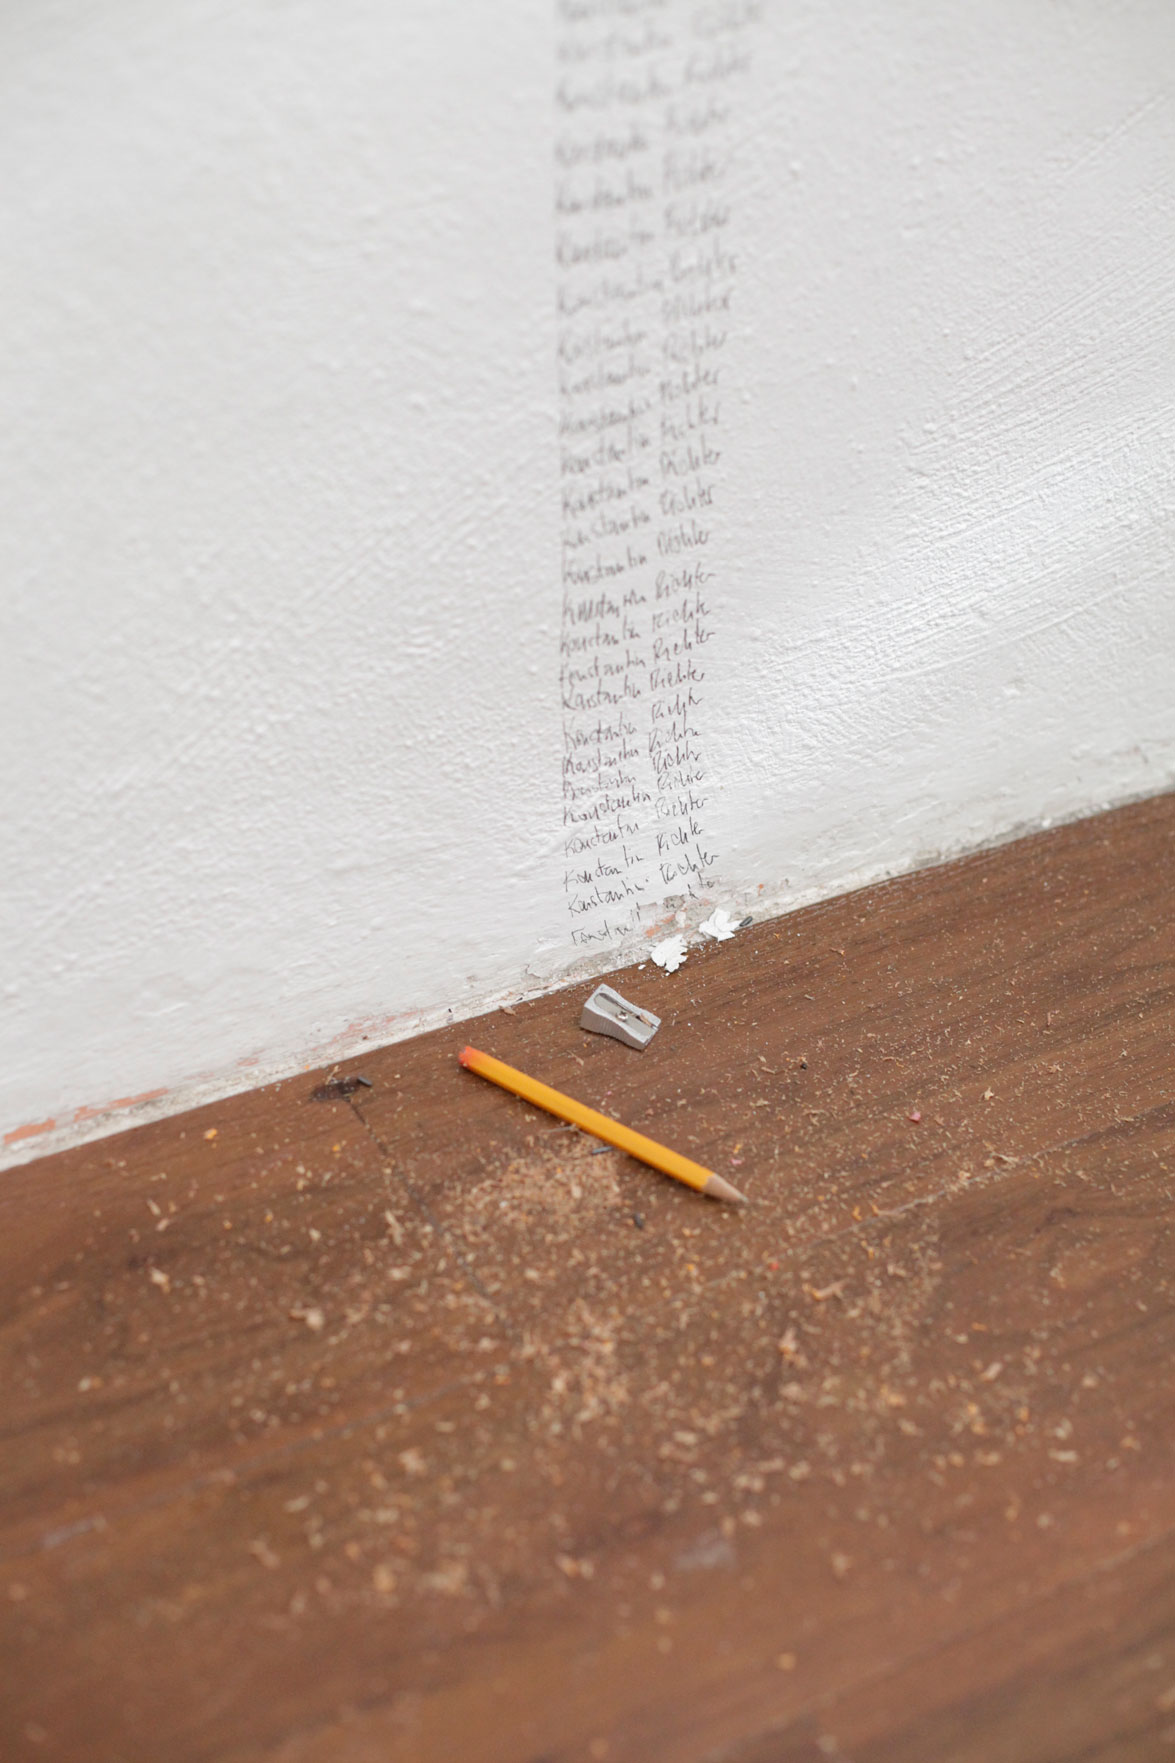 Konstantin Richter
Konstantin Richter
Konstantin Richter
Konstantin Richter
Konstantin Richter
Konstantin Richter
Konstantin Richter
Konstantin Richter
Konstantin Richter
Konstantin Richter
Konstantin Richter
Konstantin Richter
Konstantin Richter
Konstantin Richter
Konstantin Richter
Konstantin Richter
Konstantin Richter
Konstantin Richter
Konstantin Richter
Konstantin Richter
Konstantin Richter
Konstantin Richter
Konstantin Richter